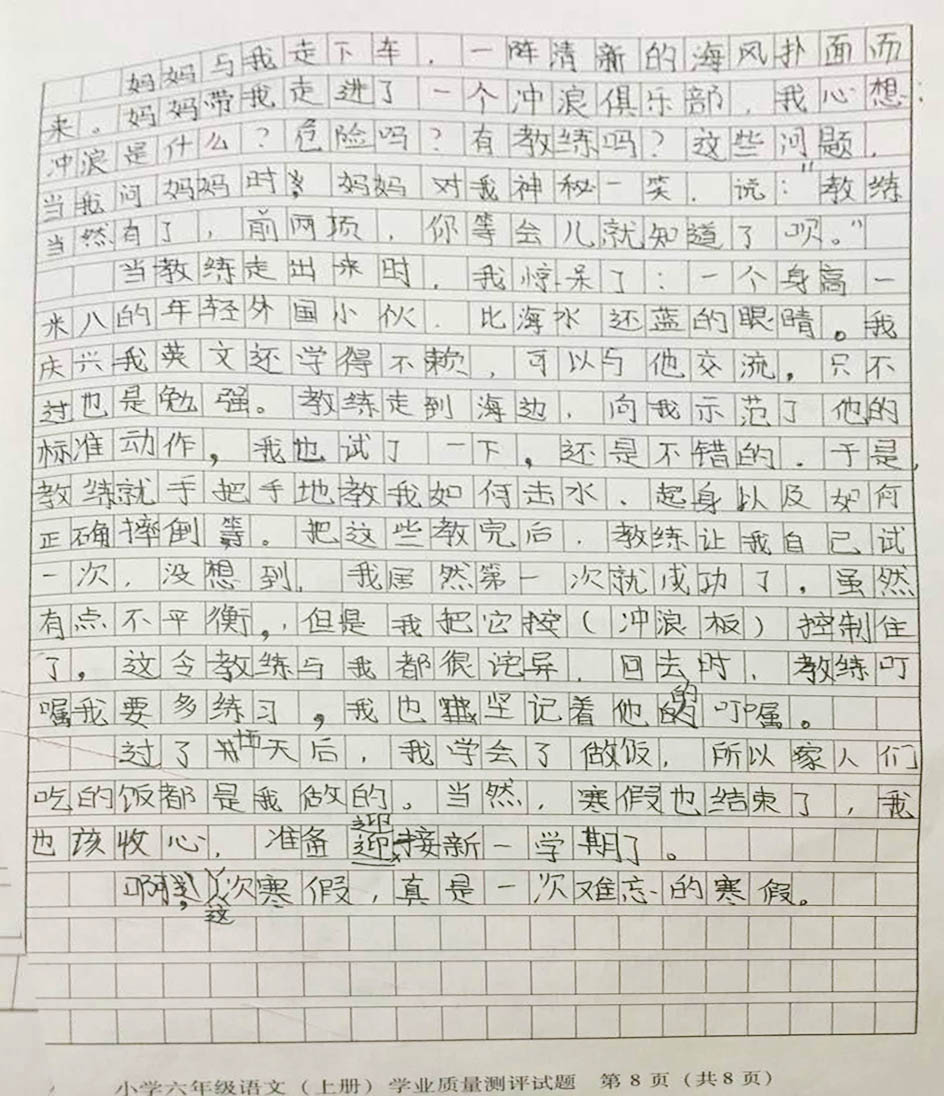 妈妈与我走下车，一阵清新的海风扑面而
来。妈妈带我走进了一个冲浪俱乐部，我心想：
冲浪是什么？危险吗？有教练吗？这些问题，
当我问妈妈时，妈妈对我神秘一笑，说：“教练
当然有了，前两项，你等会儿就知道了呗。”
当教练走出来时，我惊呆了：一个身高一
米八的年轻外国小伙，比海水还蓝的眼睛。我
庆兴我英文还学得不赖，可以与他交流，只不
过也是勉强。教练走到海边，向我示范了他的
标准动作，我也试了一下，还是不错的。于是，
教练就手把手地教我如何击水、起身以及如何
正确摔倒等。把这些教完后，教练让我自己试
一次，没想到，我居然第一次就成功了，虽然
有点不平衡，但是我把它按（冲浪板）控制住
了，这令教练与我都很诧异，回去时，教练叮
嘱我要多练习，我也坚记着他的叮嘱。
过了天后，我学会了做饭，所以家人们
吃的饭都是我做的。当然，寒假也结束了，我
也该收心，准备迎接新一学期了。
啊，这次寒假，真是一次难忘的寒假。
小学六年级语文（上册）学业质量测评试题 第8页（共8页）